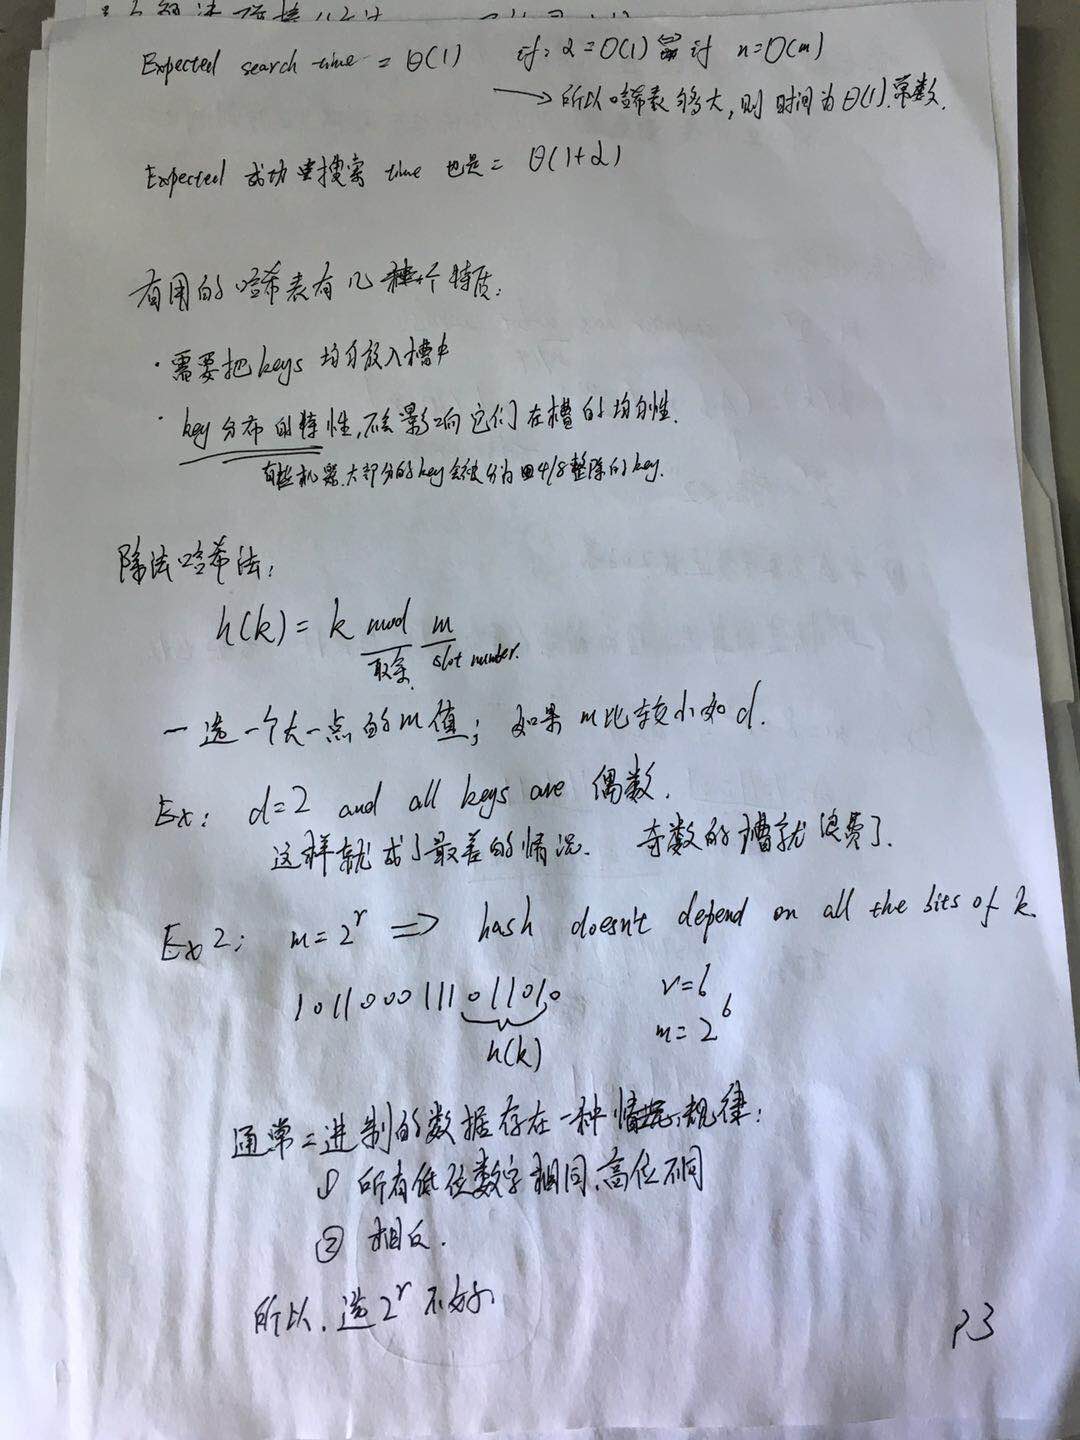 Expected search time = Θ(1) if: α = O(1) 即 if n = O(m)
→ 所以哈希表够大, 则时间为Θ(1).常数.
Expected 成功搜索 time 也是 = Θ(1+α)
有用的哈希表有几个特质:
· 需要把keys 均匀放入槽中
· key 分布的特性, 不会影响它们在槽的均匀性.
有些机器.大部分的key会被分为 4/8整除的key.
除法哈希法:
h(k) = k mod m
取余 slot number.
一 选一个大一点的m值; 如果 m比较小如 d.
Ex: d=2 and all keys are 偶数.
这样就成了最差的情况. 奇数的槽就浪费了.
Ex2: m = 2^r ⇒ hash doesn't depend on all the bits of k.
1011000111011010 r=6
h(k) m = 2^6
通常二进制的数据存在一种规律:
① 所有低位数字相同、高位不同
② 相反.
所以. 选 2^r 不好.
P3